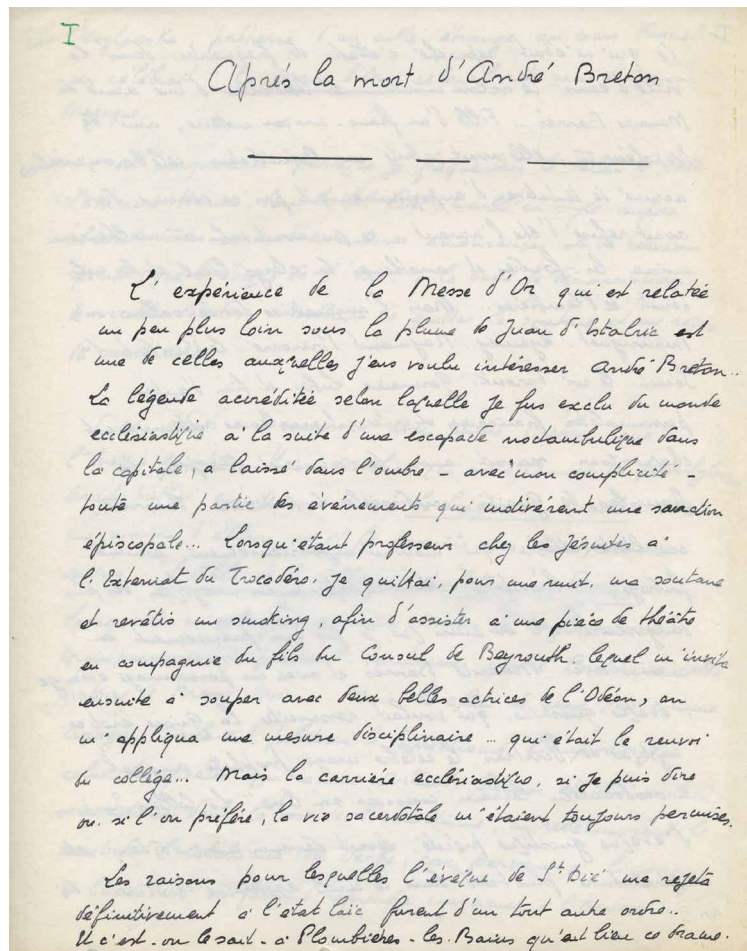 I
Après la mort d'André Breton
L'expérience de la Messe d'Or qui est relatée
un peu plus loin sous la plume de Juan d'Istalric est
une de celles auxquelles j'eus voulu intéresser André Breton..
La légende accréditée selon laquelle je fus exclu du monde
ecclésiastique à la suite d'une escapade noctambulique dans
la capitale, a laissé dans l'ombre - avec mon complicité -
toute une partie des événements qui motivèrent une sanction
épiscopale... Lorsqu'étant professeur chez les Jésuites à
l'Externat du Trocadéro, je quittai, pour une nuit, ma soutane
et revêtis un smoking, afin d'assister à une pièce de théâtre
en compagnie du fils du Consul de Beyrouth, lequel m'invita
ensuite à souper avec deux belles actrices de l'Odéon, on
m'appliqua une mesure disciplinaire ... qui était le renvoi
du collège... Mais la carrière ecclésiastique, si je puis dire
ou, si l'on préfère, la vie sacerdotale m'étaient toujours permises.
Les raisons pour lesquelles l'évêque de St Dié me rejeta
définitivement à l'état laïc furent d'un tout autre ordre..
Et c'est - on le sait - à Plombières-les-Bains qu'eut lieu ce drame.